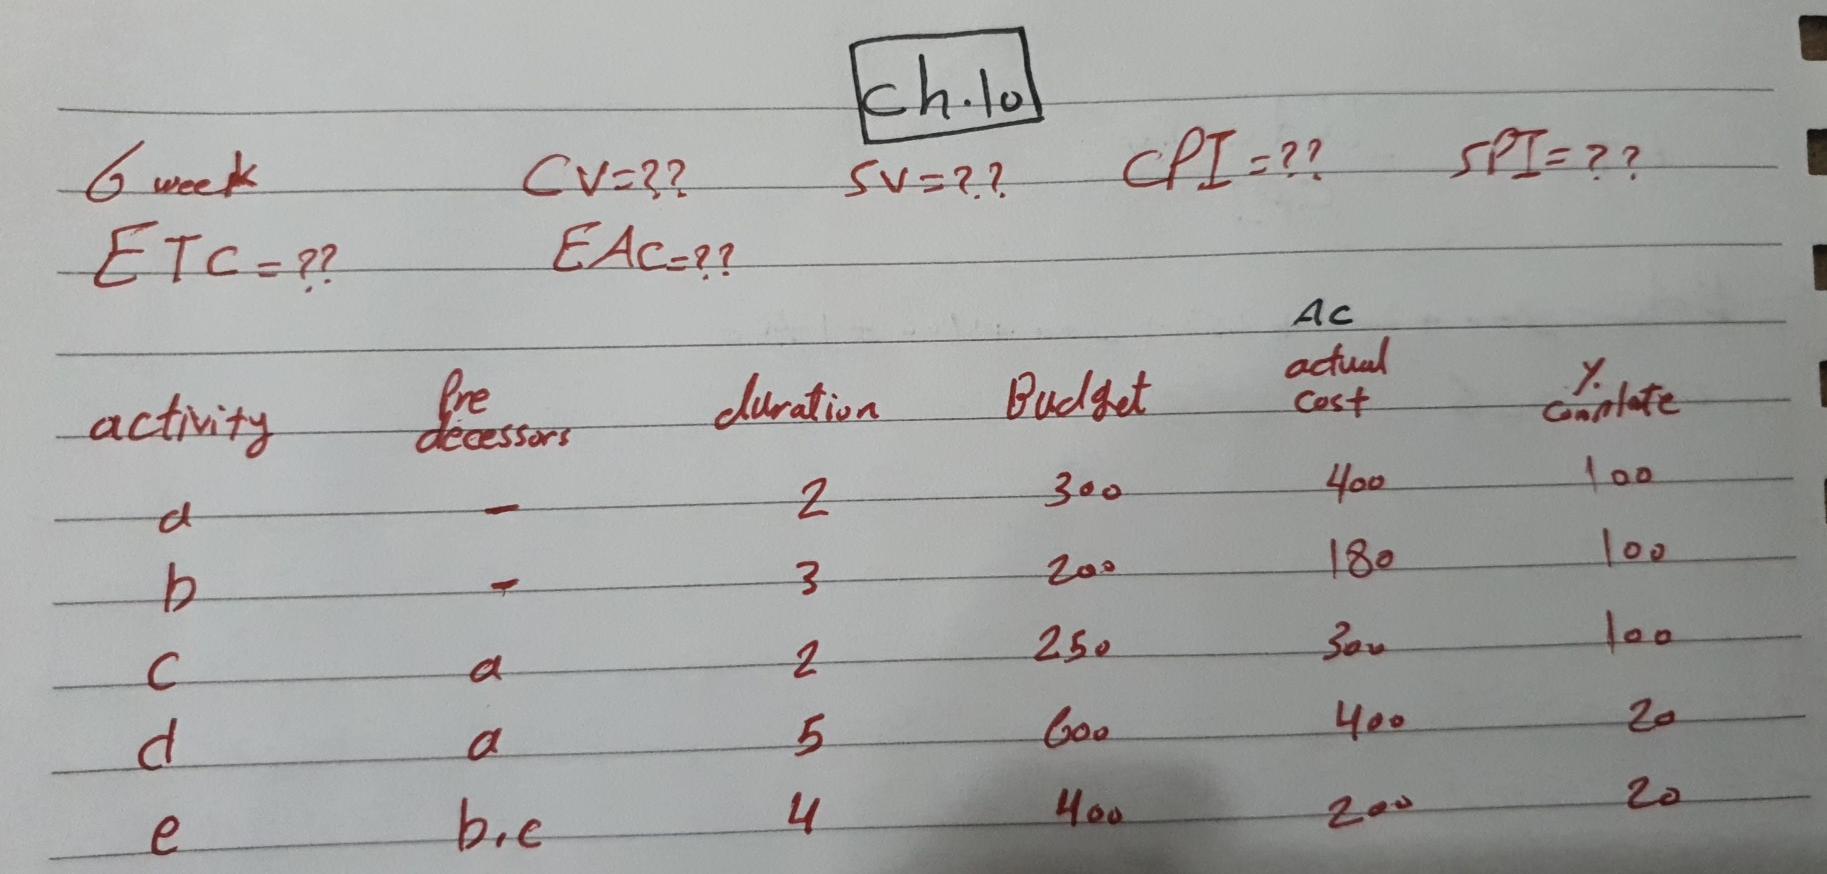 ch.10
6 week CV=?? SV=?? CPI=?? SPI=??
ETC=?? EAC=??
AC
activity Pre decessors duration Budget actual cost % complate
a - 2 300 400 100
b - 3 200 180 100
c a 2 250 300 100
d a 5 600 400 20
e b,c 4 400 200 20